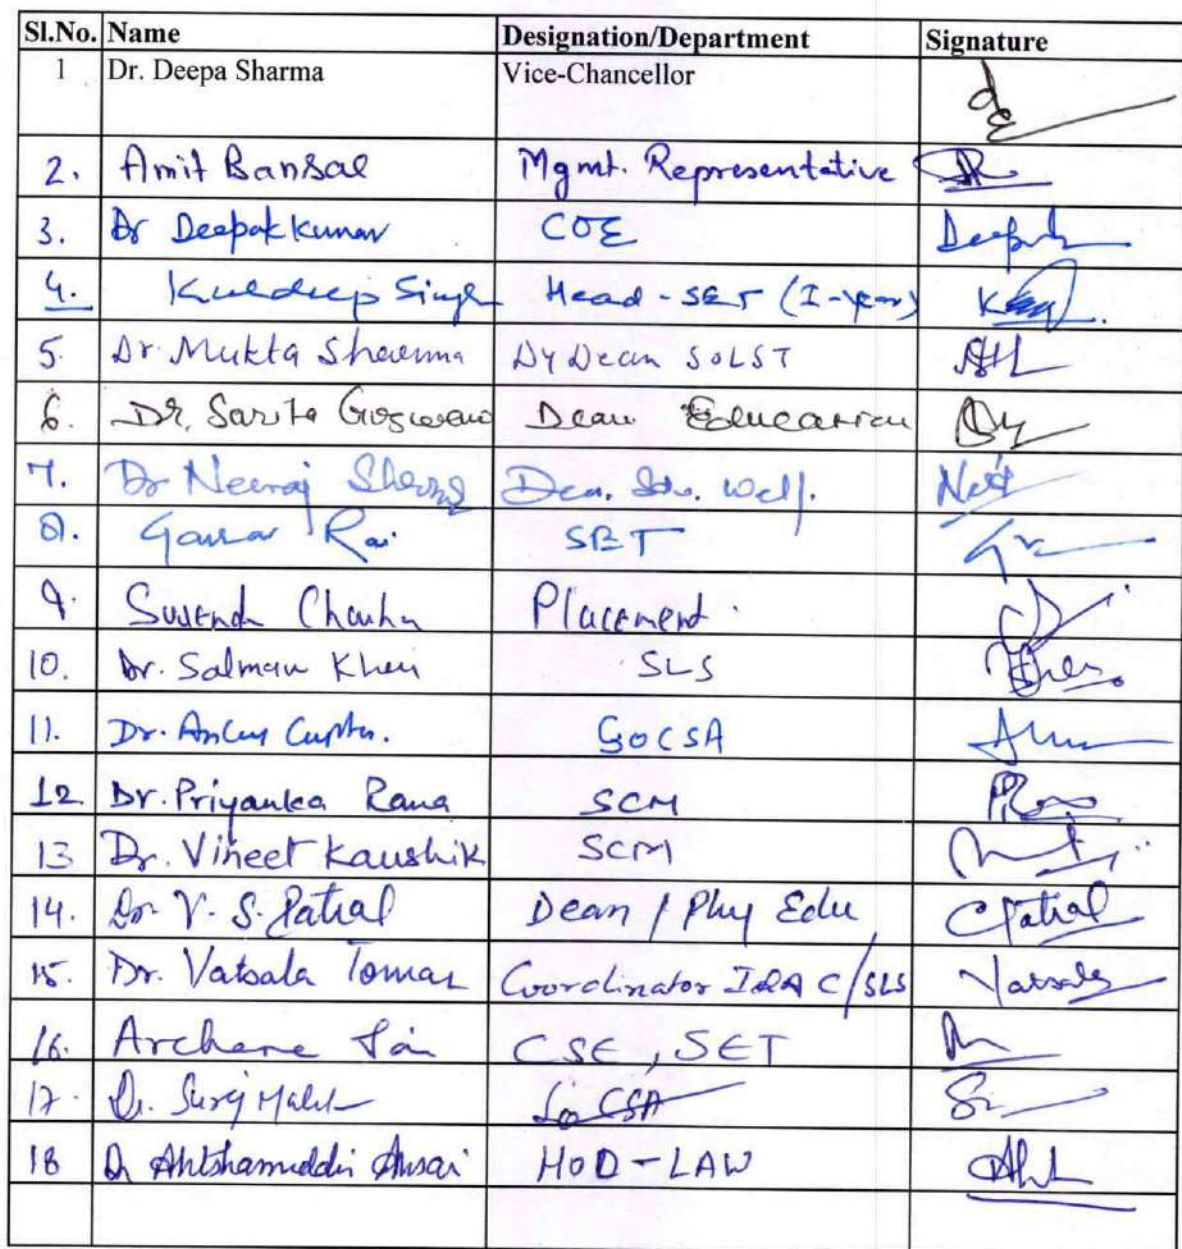 Sl.No. Name Designation/Department Signature
1 Dr. Deepa Sharma Vice-Chancellor
2. Amit Bansal Mgmt. Representative
3. Dr Deepak Kumar COE Deepak
4. Kuldeep Singh Head - SET (I-year)
5. Dr. Mukta Sharma Dy Dean SOLST
6. Dr. Sarita Goswami Dean Education
7. Dr Neeraj Sharma Dea. Stu. Welf.
8. Gaurav Rai SET
9. Placement.
10. Dr. Salman Khan SLS
11. Dr. Gupta. SOCSA
12 Dr. Priyanka Rana SCM
13 Dr. Vineet Kaushik SCM
14. Dr V. S. Patial Dean / Phy Edu Patial
15. Dr. Vatsala Tomar Coordinator IQAC/SLS Vatsala
16. Archana CSE, SET
17. Dr. Suraj SoCSA
18 Dr Ahtshamuddin Ansari HOD - LAW